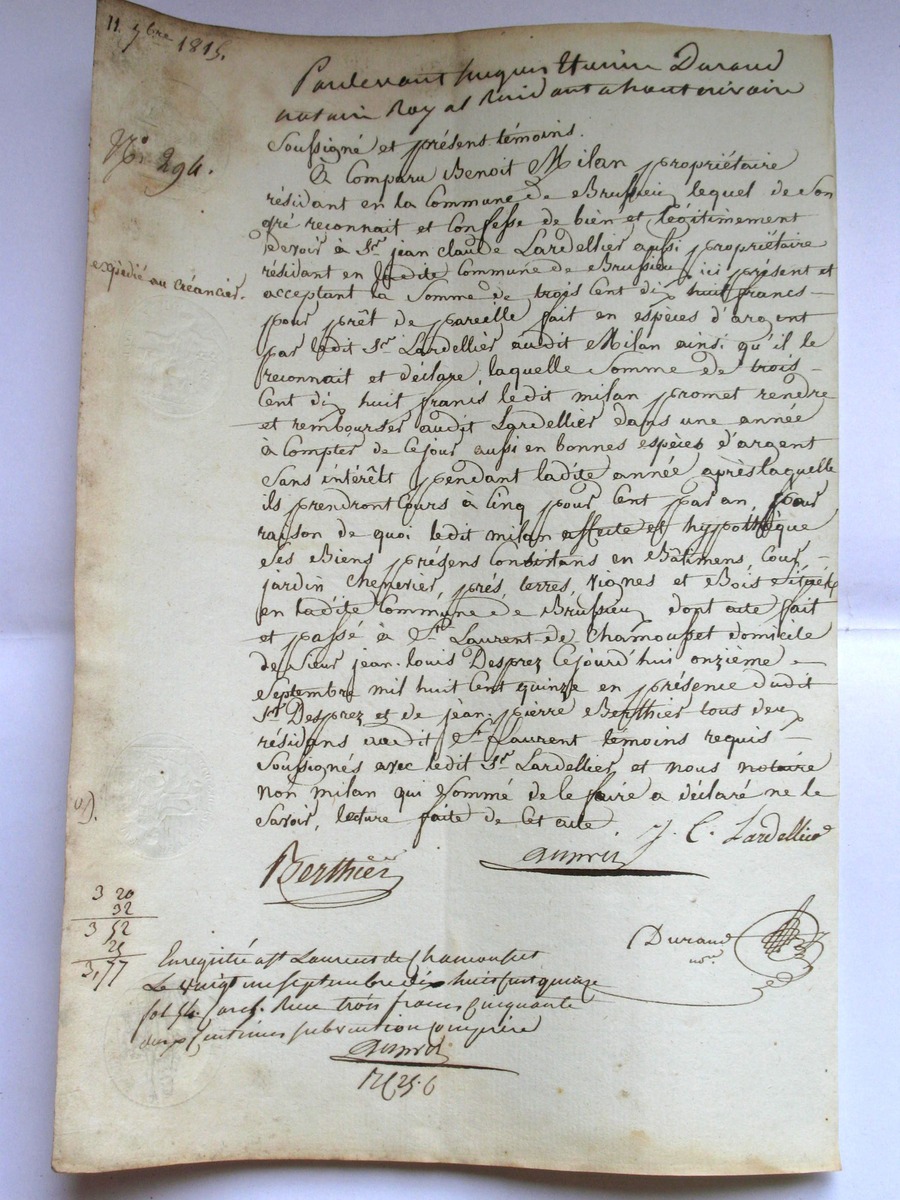 11. 7bre 1815.
Pardevant Jacques Etienne Durand
notaire Royal Residant a hauterivoire
Soussigné et présens témoins.
N° 294.
A Comparu Benoit Milan propriétaire
résidant en la Commune de Brussieu lequel de son
gré reconnait et Confesse de bien et légitimement
devoir à Sr. jean Claude Lardellier aussi propriétaire
résidant en ladite Commune de Brussieu ici présent et
expédié au créancier.
acceptant la Somme de trois Cent dix huit francs
pour prêt de pareille fait en espèces d'argent
par ledit Sr. Lardellier audit Milan ainsi qu'il le
reconnait et déclare laquelle Somme de trois
Cent dix huit francs ledit milan promet rendre
et rembourser audit Lardellier dans une année
à Compter de Cejour aussi en bonnes espèces d'argent
Sans intérêts pendant ladite année après laquelle
ils prendront Cours à Cinq pour Cent par an, pour
raison de quoi ledit milan affecte et hypothèque
Ses Biens présens Consistans en Bâtimens, Cour,
jardin Chenevier, prés, terres, Vignes et Bois Situés
en ladite Commune de Brussieu dont acte fait
et passé à St. Laurent de Chamousset domicile
de Sieur jean-louis Desprez Cejourd'hui onzième
Septembre mil huit Cent quinze en présence dudit
Sr. Desprez et de jean pierre Berthier tous deux
résidans audit St. Laurent témoins requis
Soussignés avec ledit Sr. Lardellier et nous notaire
non milan qui Sommé de le faire a déclaré ne le
Savoir, lecture faite de Cet acte
J. C. Lardellier
Berthier
3 20
32
3 52
25
3,77
Durand
nore
Enregistré a St Laurent de Chamousset
Le vingt un septembre dix huit cent quinze
fol 54. Reçu trois francs cinquante
deux Centimes subvention comprise